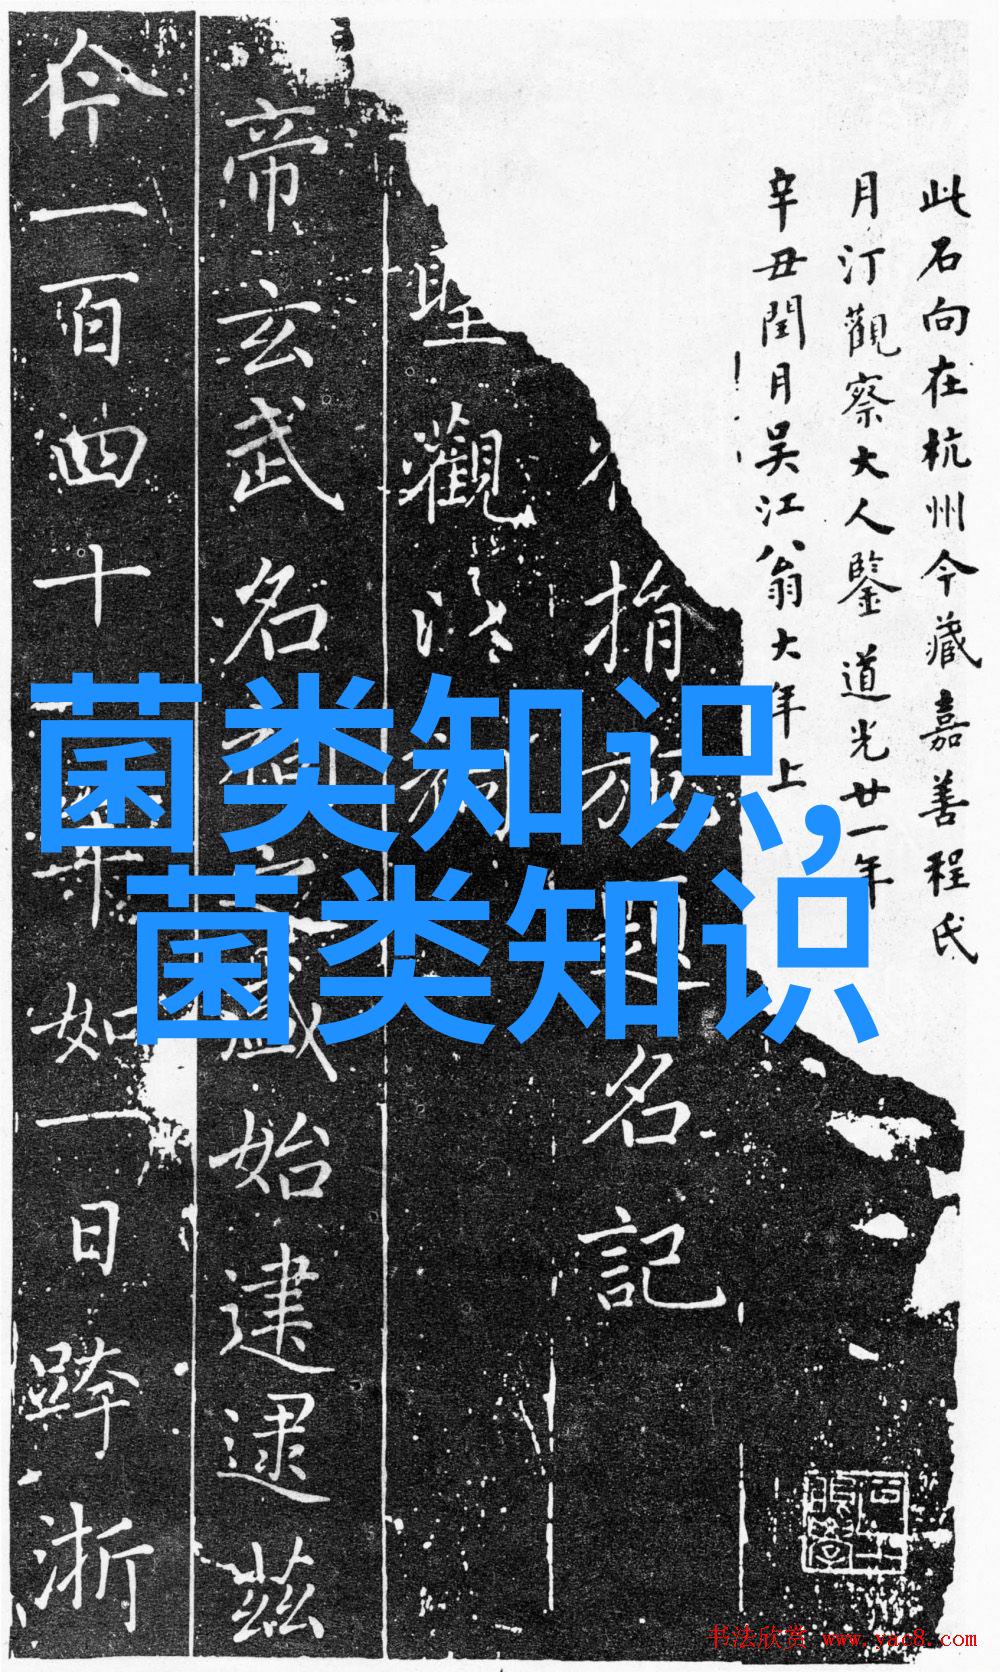 菌类知识,
菌类知识
此石向在杭州今藏嘉善程氏
月汀觀察大人鑒道光廿一年
辛丑閏月吳江翁大年上
捐施題名記
聖觀
帝玄武名盛始建逮茲
今一百四十年如一日跨浙
书法欣赏 www.yac8.com